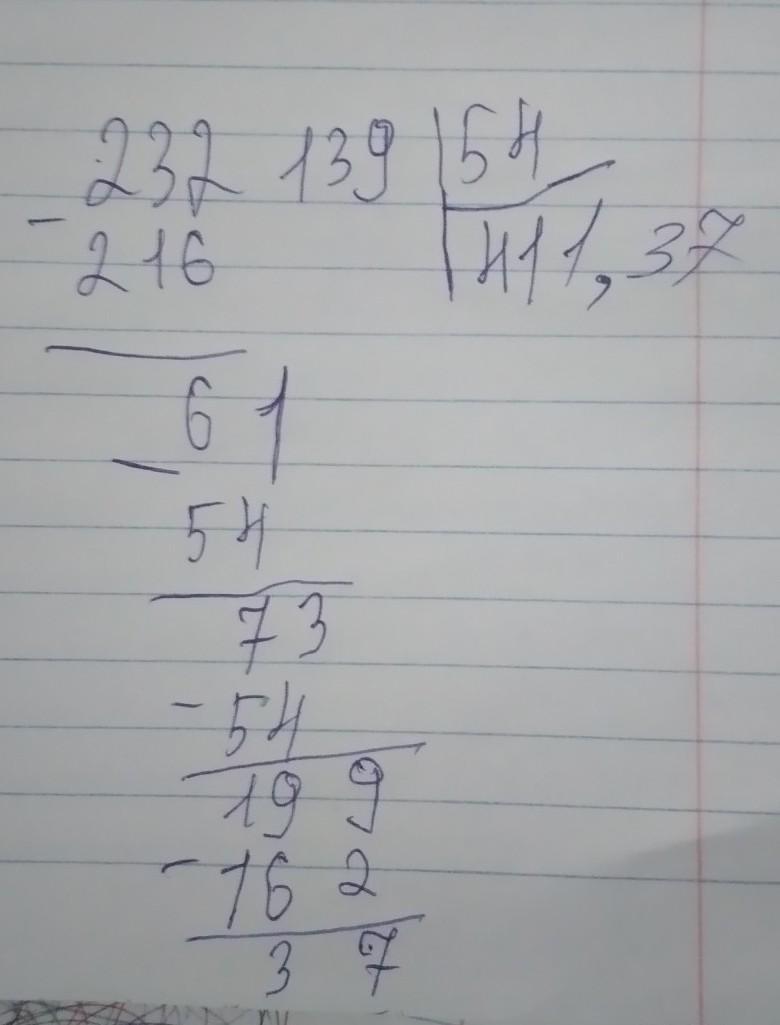 232 139 54
- 216 411,37
61
- 54
73
- 54
199
- 162
37